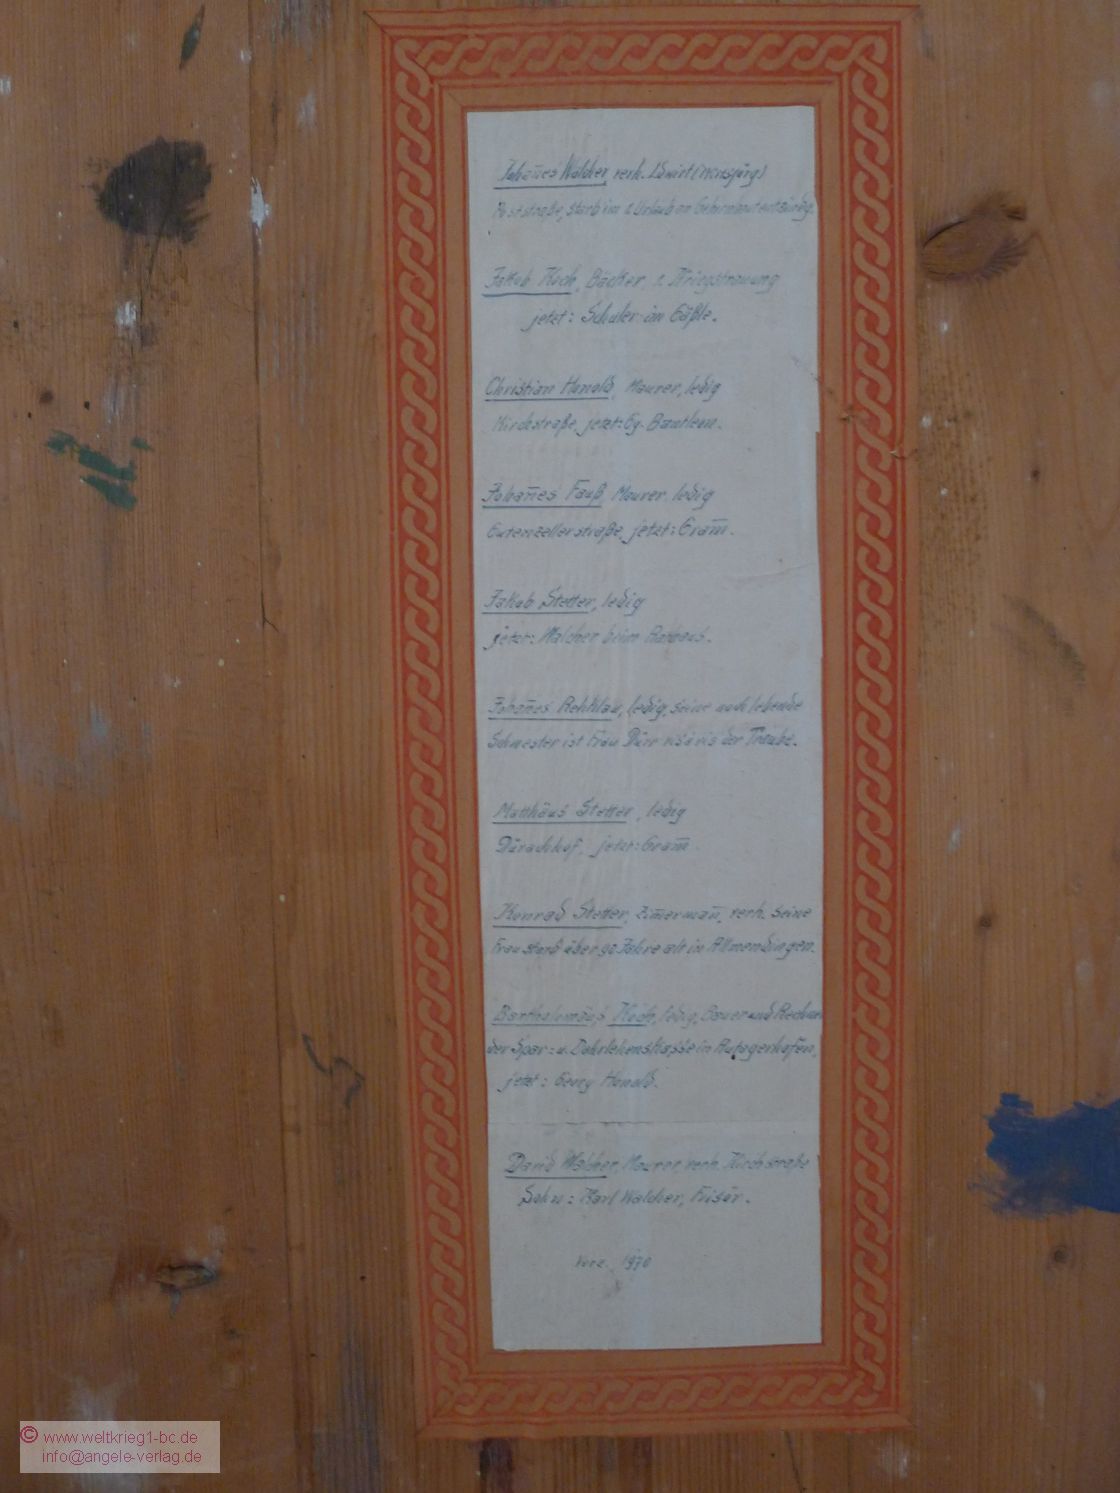 Johañes Walcher, verh. Ldwirt
Poststraße, starb im Urlaub an Gehirnhautentzündg.
Jakob Koch, Bäcker, 1. Kriegstrauung
jetzt: Schuler im Gäßle.
Christian Honold, Maurer, ledig
Kirchstraße, jetzt: Gg. Bantlein.
Johañes Fauß, Maurer, ledig
Gutenzellerstraße, jetzt: Gram̅.
Jakob Stetter, ledig
jetzt: Walcher beim Rathaus.
Johañes Rehklau, ledig, seine noch lebende
Schwester ist Frau Dürr visavis der Traube.
Matthäus Stetter, ledig
jetzt: Gram̅.
Konrad Stetter, Zim̅ermañ, verh. seine
Frau starb über 90 Jahre alt in Allmendingen.
Bartholomäus Koch, ledig, Bauer und Rechner
der Spar- u. Darlehenskasse in
jetzt: Georg Honold.
David Walcher, Maurer, verh. Kirchstraße
Sohn: Karl Walcher, Frisör.
1970
© www.weltkrieg1-bc.de
info@angele-verlag.de